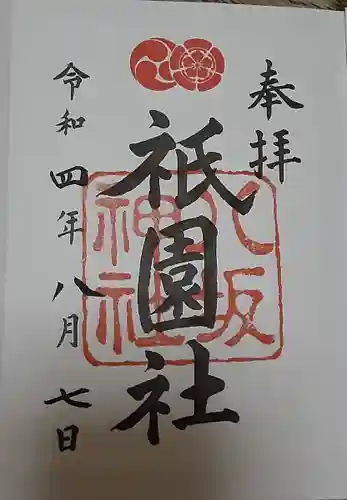 奉拝
祇園社
八坂
神社
令和四年八月七日